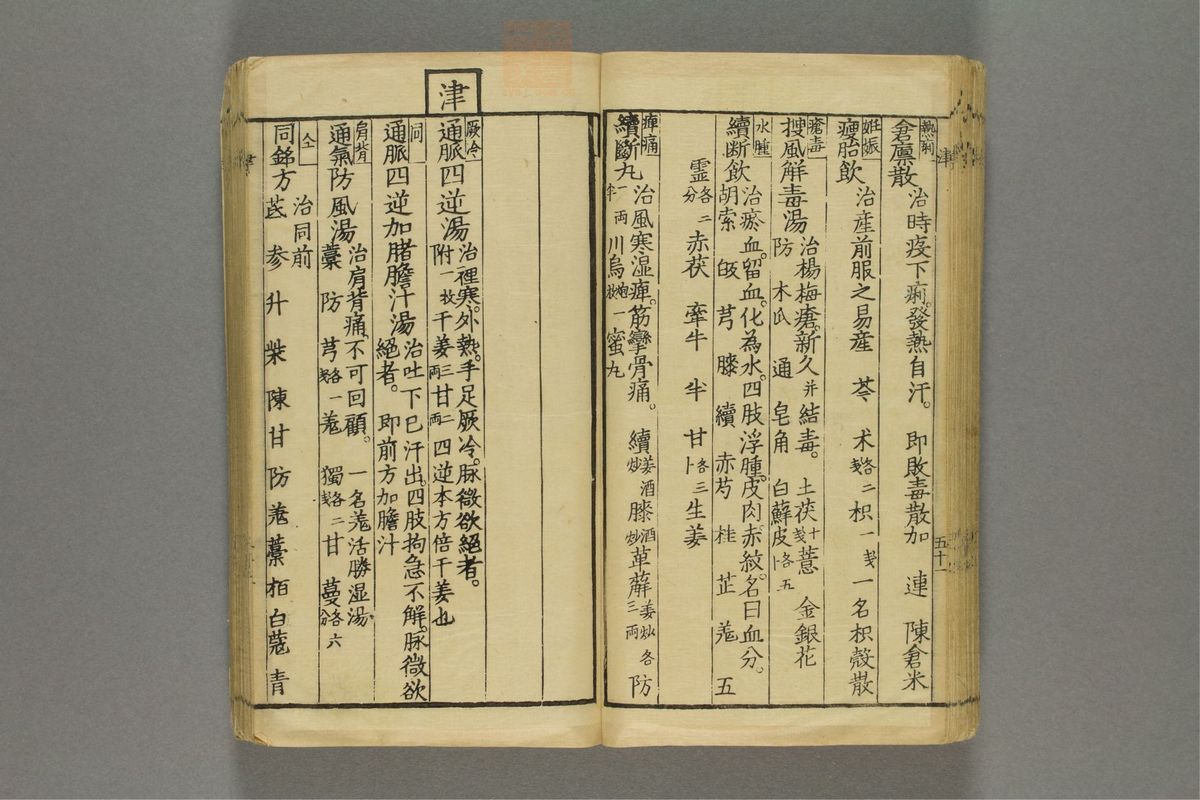 熱痢
倉廩散
治時疫下痢。發熱自汗。 即敗毒散加 連 陳倉米
妊娠
瘦胎飲
治産前服之易産 苓 朮各二戔 枳一戔 一名枳殼散
瘡毒
搜風解毒湯
治楊梅瘡。新久并結毒。 土茯十戔 薏 金銀花
防 木瓜 通 皂角 白蘚皮各五卜
水腫
續断飲
治瘀血。留血。化為水。四肢浮腫。皮肉。赤紋。名曰血分。
胡索 芎 膝 續 赤芍 桂 芷 羗 五
靈各二分 赤茯 牽牛 半 甘各三卜 生姜
痺痛
續斷丸
治風寒湿痺。筋攣骨痛。 續姜酒炒 膝酒炒 萆薢姜炒各三両 防
一両半 川烏炮一枚 蜜丸
津
五十一
津
厥冷
通脈四逆湯
治裡寒。外熱。手足厥冷。脉微欲絕者。
附一枚 干姜三両 甘二両 四逆本方倍干姜也
同
通脈四逆加豬膽汁湯
治吐下已汗出。四肢拘急不解。脉微欲
絕者。 即前方加膽汁
肩背
通氣防風湯
治肩背痛。不可回顧。 一名羗活勝湿湯
藁 防 芎各一戔 羗 獨各二戔 甘 蔓各六分
仝
同銘方
治同前
芪 参 升 柴 陳 甘 防 羗 藁 栢 白蔲 青